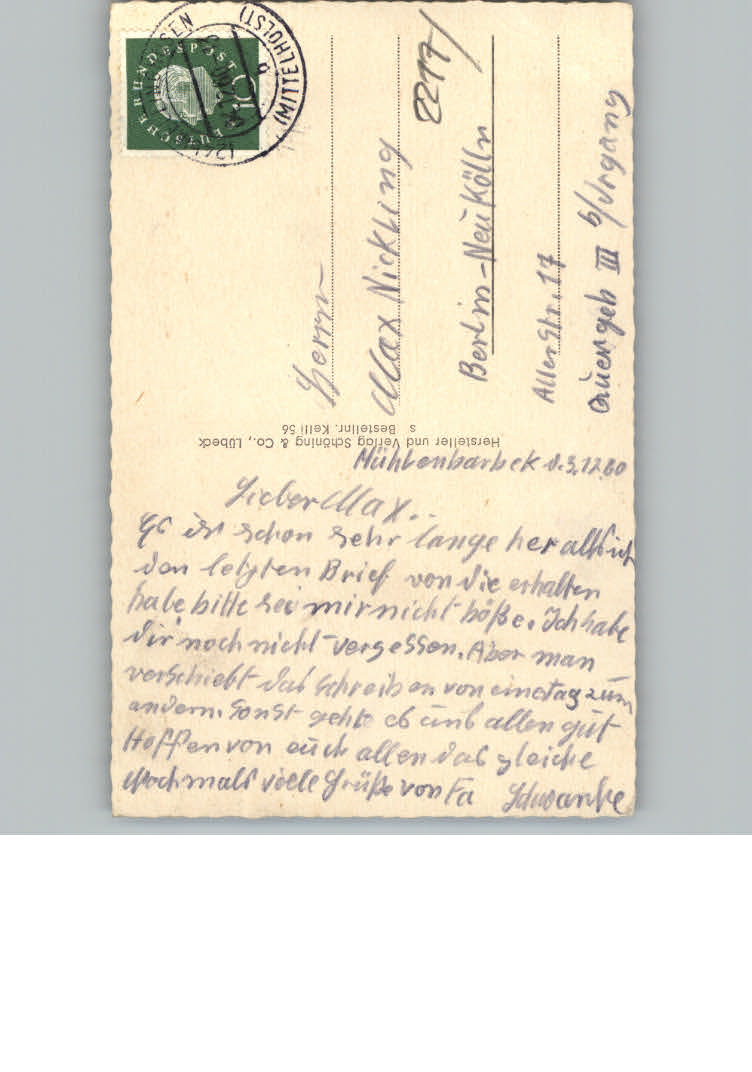 Mühlenbarbek d. 3.12.60
Lieber Max..
Es ist schon sehr lange her alls ich
den letzten Brief von die erhalten
habe bitte sei mir nicht böße. Ich habe
dir noch nicht vergessen. Aber man
verschiebt das schreiben von einetag zum
andern. sonst gehts es uns allen gut
Hoffen von euch allen das gleiche
Nochmals viele Grüße von Fa Schwanke
Herrn
Max Nickling
Berlin-Neukölln
Allerstr. 17
Quergeb III b/Urgang
2217/
Hersteller und Verlag Schöning & Co., Lübeck
s Bestellnr. Kelli 56
DEUTSCHE BUNDESPOST
10
(MITTELHOLST)